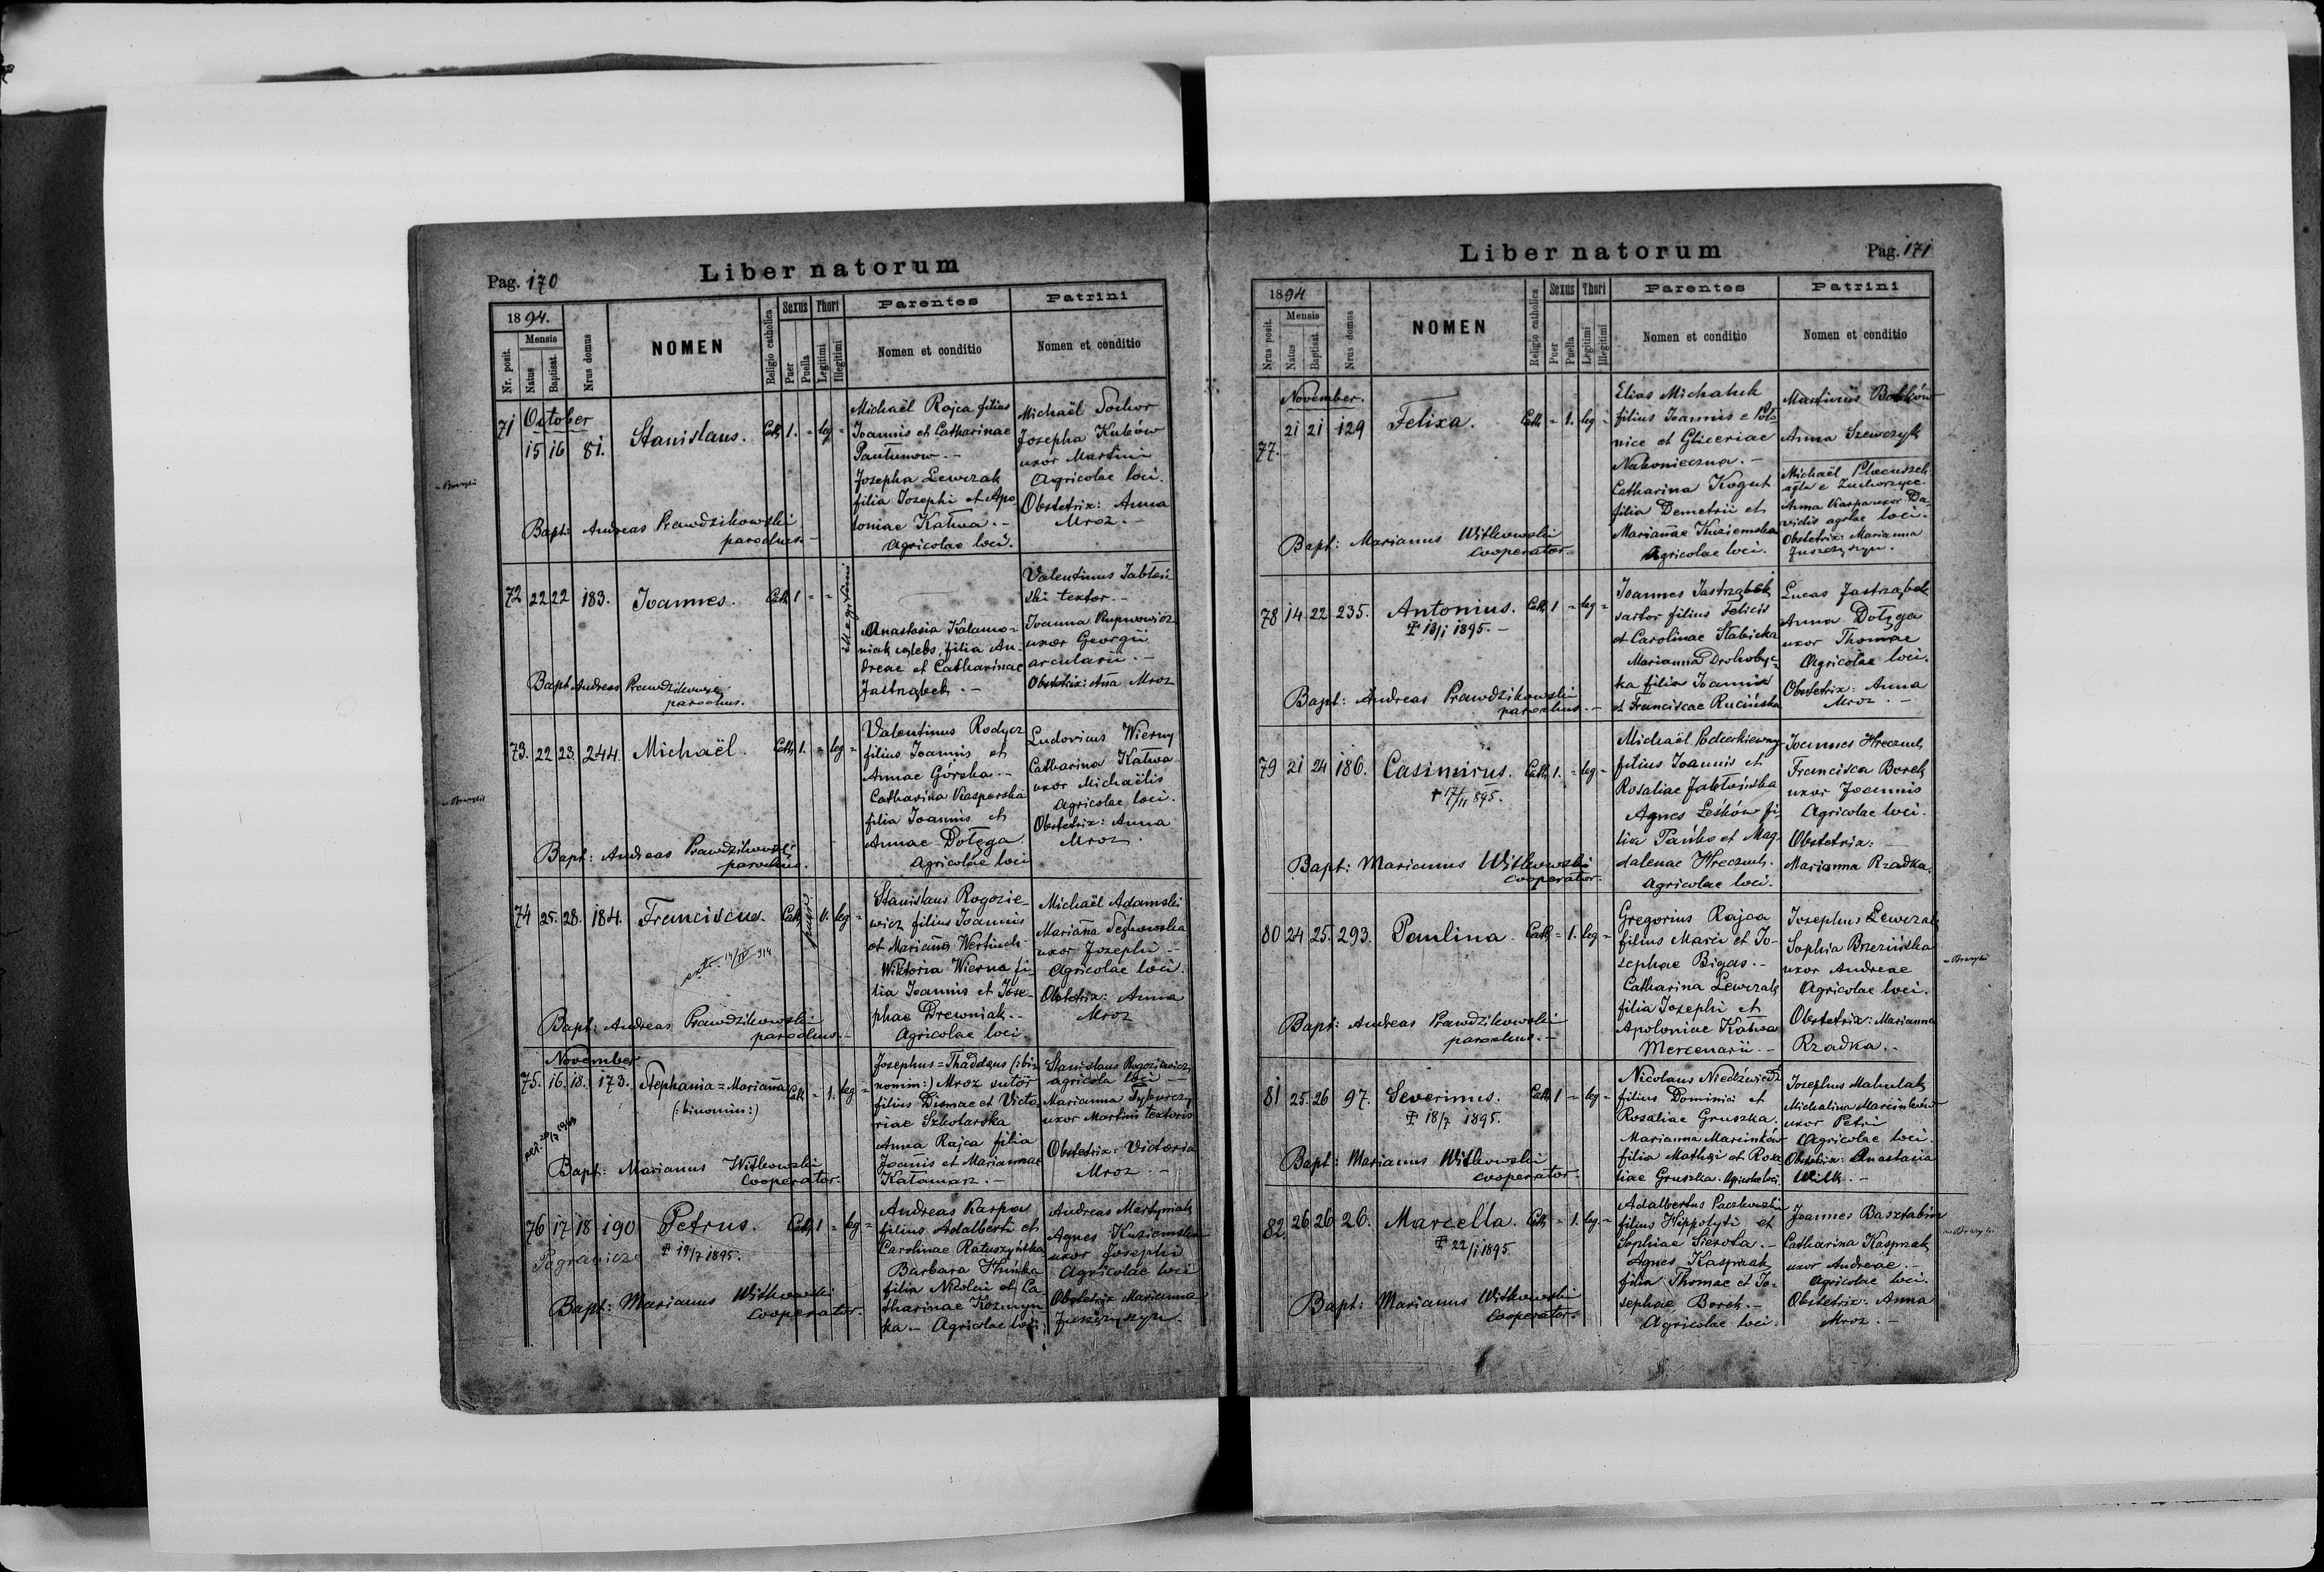 Pag. 170
Liber natorum
1894.
Mensis
Nr. posit.
Natus
Baptisat.
Nrus domus
NOMEN
Religio catholica
Sexus
Puer
Puella
Thori
Legitimi
Illegitimi
Parentes
Nomen et conditio
Patrini
Nomen et conditio
October
71 15 16 81. Stanislaus. Cath 1. = leg =
Michaël Rajca filius
Joannis et Catharinae
Pantunow. -
Josepha Lewczak
filia Josephi et Apo
loniae Katwa. -
Agricolae loci.
Michaël Sochor
Josepha Kubów
uxor Martini
Agricolae loci.
Obstetrix: Anna
Mroz. -
Bapt: Andreas Prawdzikowski
parochus. -
72 22 22 183. Joannes. Cath 1 = =
illegitimi
Anastasia Kalamo=
niak caelebs, filia An=
dreae et Catharinae
Jastrząbek. -
Valentinus Jabłoń
ski textor. -
Joanna Rupnowicz
uxor Georgii
arcularii. -
Obstetrix: Ana Mroz
Bapt Andreas Prawdzikowski
parochus.
73. 22 23. 244. Michaël. Cath 1. = leg =
Valentinus Rodycz
filius Joannis et
Annae Górska. -
Catharina Kasperska
filia Joannis et
Annae Dołęga
Agricolae loci
Ludovicus Wierny
Catharina Katwa
uxor Michaëlis
Agricolae loci.
Obstetrix: Anna
Mroz.
Bapt: Andreas Prawdzikowski
parochus.
74 25. 28. 184. Franciscus. Cath leg =
Stanislaus Rogozie=
wicz filius Joannis
et Mariana Wertinch
Wiktoria Wierna fi=
lia Joannis et Jose=
phae Drewniak. -
Agricolae loci
Michaël Adamski
Mariana
uxor Josephi -
Agricolae loci.
Obstetrix: Anna
Mroz
14/IV 914
Bapt: Andreas Prawdzikowski
parochus. -
November
75. 16. 18. 173. Stephania = Mariana Cath = 1. leg =
(:binomin:)
Josephus = Thaddeus (:bi=
nomin:) Mroz sutor
filius Dismae et Victo=
riae Szkolarska
Anna Rajca filia
Joanis et Mariannae
Katamarz. -
Stanislaus Rogoziewicz
agricola loci -
Marianna Tyburczy
uxor Martini textoris
Obstetrix: Victoria
Mroz. -
Bapt: Marianus Witkowski
Cooperator.
76 17 18 190 Petrus. Cath 1 = leg =
Pogranicze
✝ 19/7 1895.
Andreas Karpa
filius Adalberti et
Carolinae Ratuszyńska
Barbara Hnińka
filia Nicolai et Ca
tharinae Kozmyn
ka. - Agricolae loci.
Andreas Martyniak
Agnes Kuziemska
uxor Josephi
Agricolae loci
Obstetrix Marianna
Juszczyszyn.
Bapt: Marianus Witkowski
Cooperator.
Liber natorum
Pag. 171
1894
Mensis
Nrus posit.
Natus
Baptisat.
Nrus domus
NOMEN
Religio catholica
Sexus
Puer
Puella
Thori
Legitimi
Illegitimi
Parentes
Nomen et conditio
Patrini
Nomen et conditio
November.
77. 21 21 129 Felixa. Cath = 1. leg =
Elias Michaluk
filius Joannis e Poło=
nice et Gliceriae
Nakonieczna. -
Catharina Kogut
filia Demetrii et
Marianae Kuziemska
Agricolae loci.
Martinus Bobków
Anna Szewczyk
Michaël Placuszek
agla e Zuchorzyce.
Anna Karpa uxor Da=
vidis agrlae loci.
Obstetrix: Marianna
Juszczyszyn.
Bapt: Marianus Witkowski
Cooperator.
78 14 22 235. Antonius. Cath 1 = leg =
✝ 13/1 1895. -
Joannes Jastrząbek
sartor filius Felicis
et Carolinae Słabicka
Marianna Drohobyc=
ka filia Joannis
et Franciscae Rucińska
Lucas Jastrząbek
Anna Dołęga
uxor Thomae
Agricolae loci.
Obstetrix: Anna
Mroz. -
Bapt: Andreas Prawdzikowski
parochus. -
79 21 24 186. Casimirus. Cath 1. = leg =
✝ 17/11 895.
Michaël Poderkiewny
filius Joannis et
Rosaliae Jabłońska
Agnes Leśków fi=
lia Pańko et Mag=
dalenae Hreczuch.
Agricolae loci.
Joannes Hreczuch
Francisca Borek
uxor Joannis
Agricolae loci.
Obstetrix: -
Marianna Rzadka.
Bapt: Marianus Witkowski
Cooperator.
80 24 25. 293. Paulina. Cath = 1. leg =
Gregorius Rajca
filius Marci et Jo=
sephae Bigas. -
Catharina Lewczak
filia Josephi et
Apoloniae Katwa
Mercenarii. -
Josephus Lewczak
Sophia Brzezińska
uxor Andreae
Agricolae loci.
Obstetrix: Marianna
Rzadka. -
Bapt: Andreas Prawdzikowski
parochus. -
81 25. 26 97. Severinus. Cath 1 = leg =
✝ 18/7 1895.
Nicolaus Niedźwiedź
filius Dominici et
Rosaliae Gruszka.
Marianna Marcinków
filia Mathei et Rosa=
liae Gruszka. Agricolae loci.
Josephus Mahulak
Michalina Marcinków
uxor Petri
Agricolae loci.
Obstetrix: Anastasia
Wilk. -
Bapt: Marianus Witkowski
cooperator.
82. 26 26 26. Marcella. Cath = 1. leg =
✝ 22/1 1895
Adalbertus Paczkowski
filius Hippolyti et
Sophiae Sierota. -
Agnes Kasprzak
filia Thomae et Jo=
sephae Borek. -
Agricolae loci.
Joannes Basztabin
Catharina Kasprzak
uxor Andreae. -
Agricolae loci.
Obstetrix: Anna
Mroz. -
Bapt: Marianus Witkowski
Cooperator.